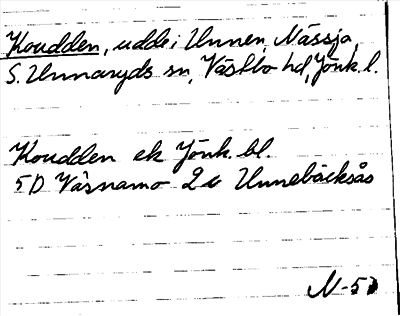 Koudden, udde i Unnen, Nässja,
S. Unnaryds sn, Västbo hd, Jönk. l.
Koudden ek Jönk. bl.
5D Värnamo 2 Unnebäcksås
N-57